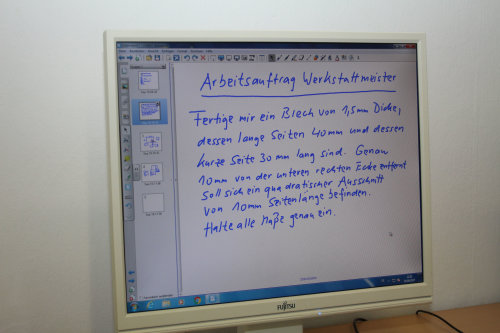 Arbeitsauftrag Werkstattmeister
Fertige mir ein Blech von 1,5mm Dicke,
dessen lange Seiten 40mm und dessen
kurze Seite 30mm lang sind. Genau
10mm von der unteren rechten Ecke entfernt
soll sich ein quadratischer Ausschnitt
von 10mm Seitenlänge befinden.
Halte alle Maße genau ein.
FUJITSU